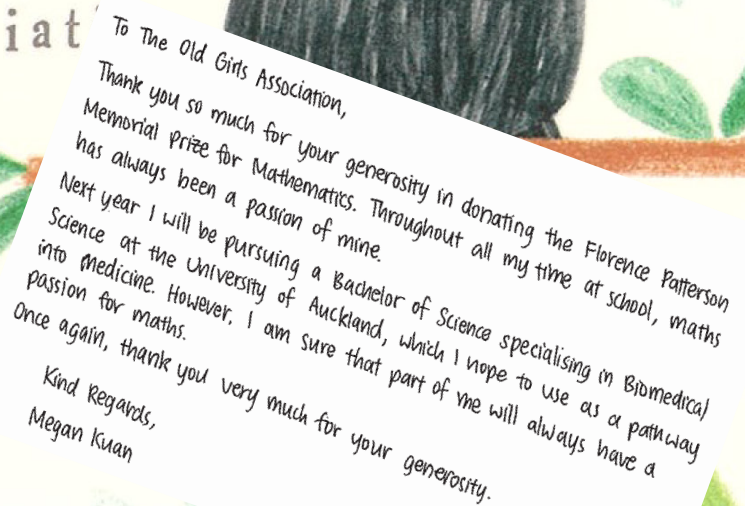 iat
To The Old Girls Association,
Thank you so much for your generosity in donating the Florence Patterson
Memorial Prize for Mathematics. Throughout all my time at school, maths
has always been a passion of mine.
Next year I will be pursuing a Bachelor of Science specialising in Biomedical
Science at the University of Auckland, which I hope to use as a pathway
into Medicine. However, I am sure that part of me will always have a
passion for maths.
Once again, thank you very much for your generosity.
Kind Regards,
Megan Kuan